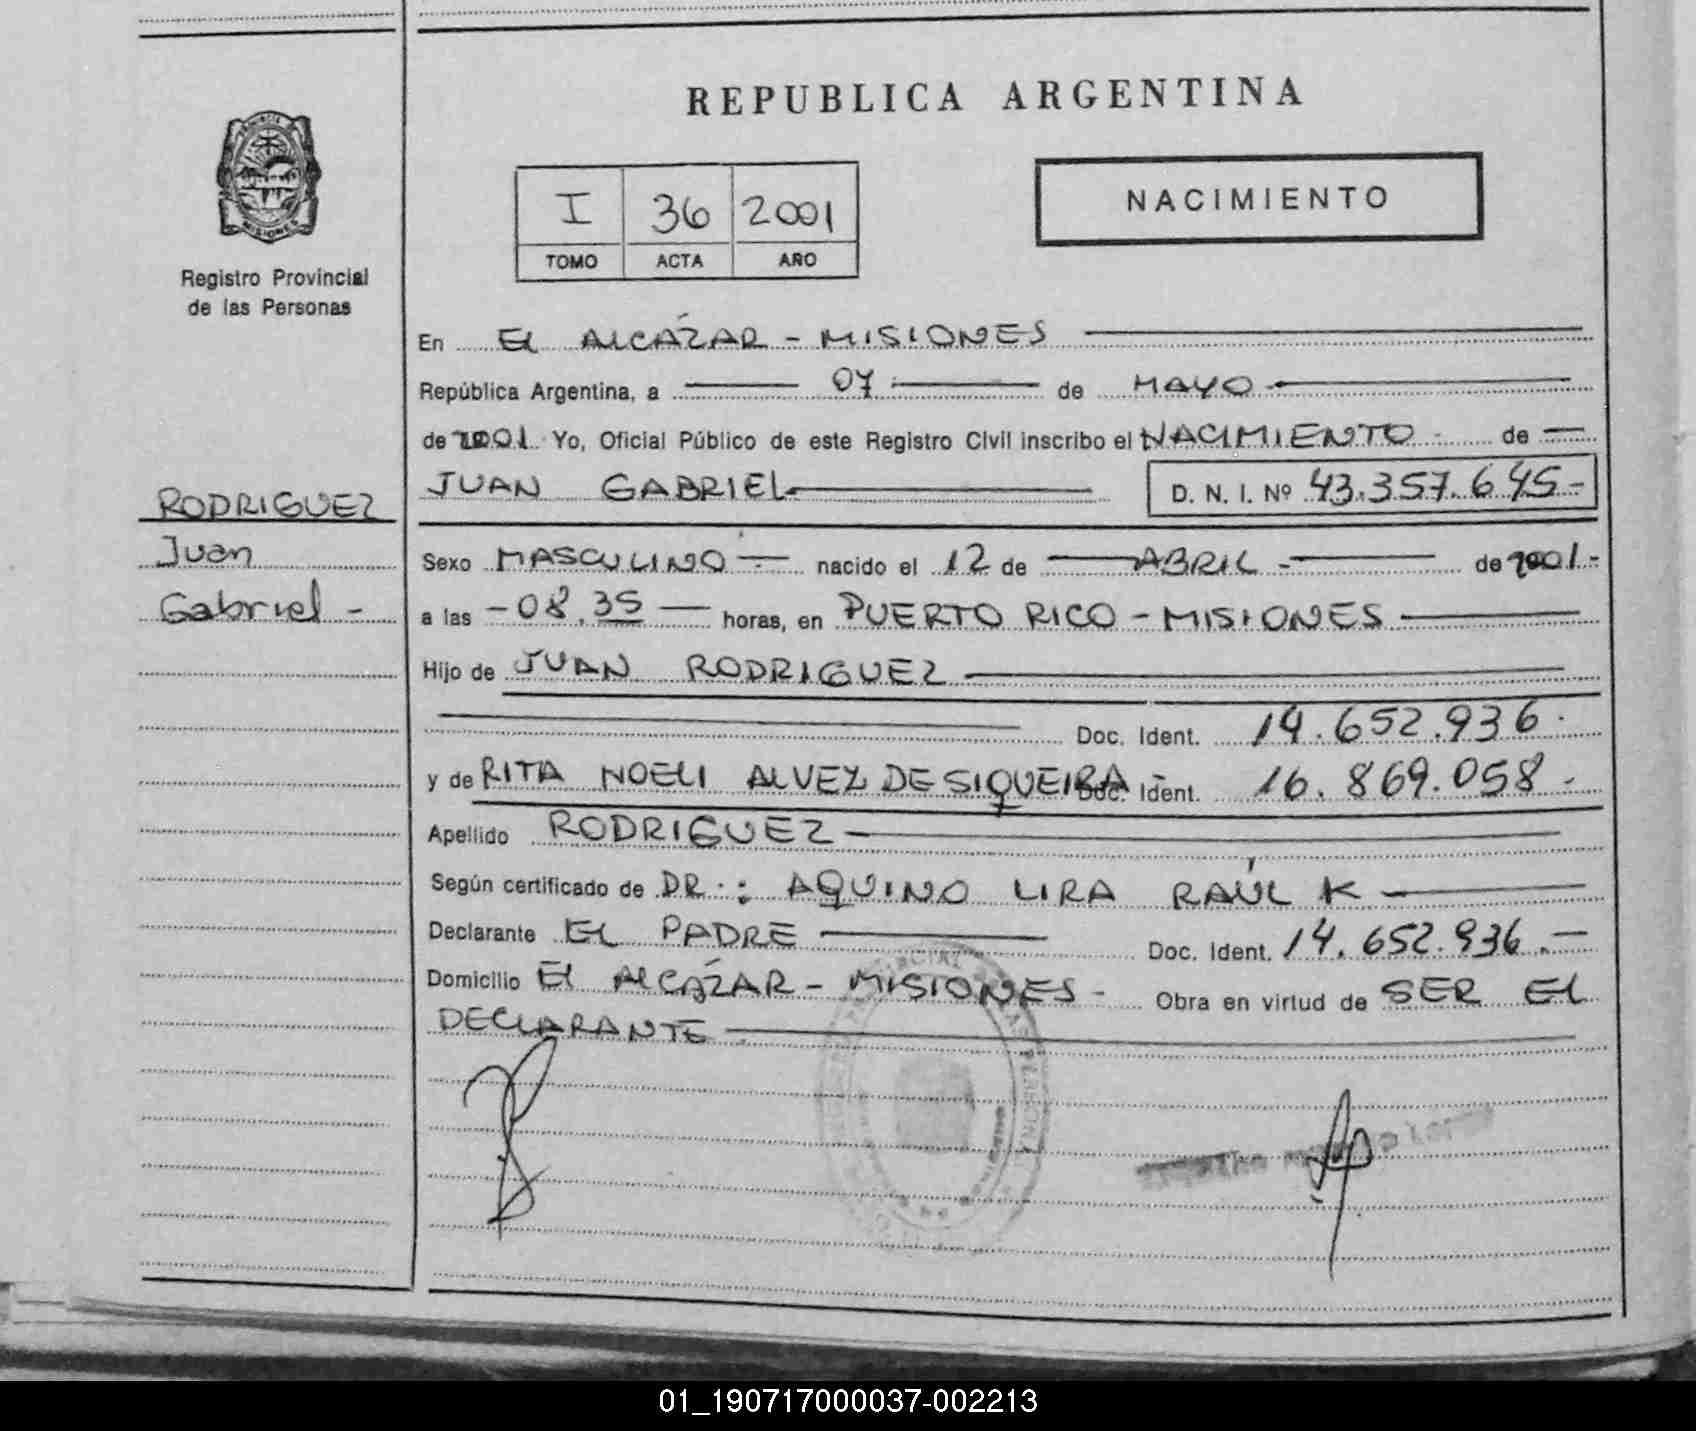 REPUBLICA ARGENTINA
NACIMIENTO
I 36 2001
TOMO ACTA AÑO
Registro Provincial
de las Personas
En EL ALCÁZAR - MISIONES
República Argentina, a 07 de MAYO
de 2001 Yo, Oficial Público de este Registro Civil inscribo el NACIMIENTO de
JUAN GABRIEL D. N. I. Nº 43.357.645-
RODRIGUEZ
Juan
Gabriel -
Sexo MASCULINO nacido el 12 de ABRIL - de 2001-
a las - 08.35 horas, en PUERTO RICO - MISIONES
Hijo de JUAN RODRIGUEZ
Doc. Ident. 14.652.936.
y de RITA NOELI ALVEZ DE SIQUEIRA - Doc. Ident. 16.869.058-
Apellido RODRIGUEZ
Según certificado de DR.: AQUINO LIRA RAÚL K
Declarante EL PADRE Doc. Ident. 14.652.936.-
Domicilio El ALCÁZAR - MISIONES - Obra en virtud de SER EL
DECLARANTE
01_190717000037-002213